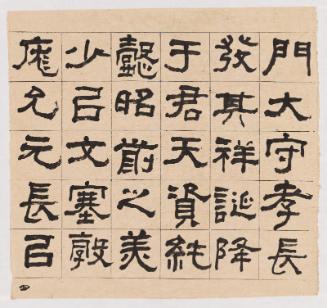 門大守孝長
發其祥誕降
于君天資純
懿昭前之美
少㠯文塞敦
庬允元長㠯